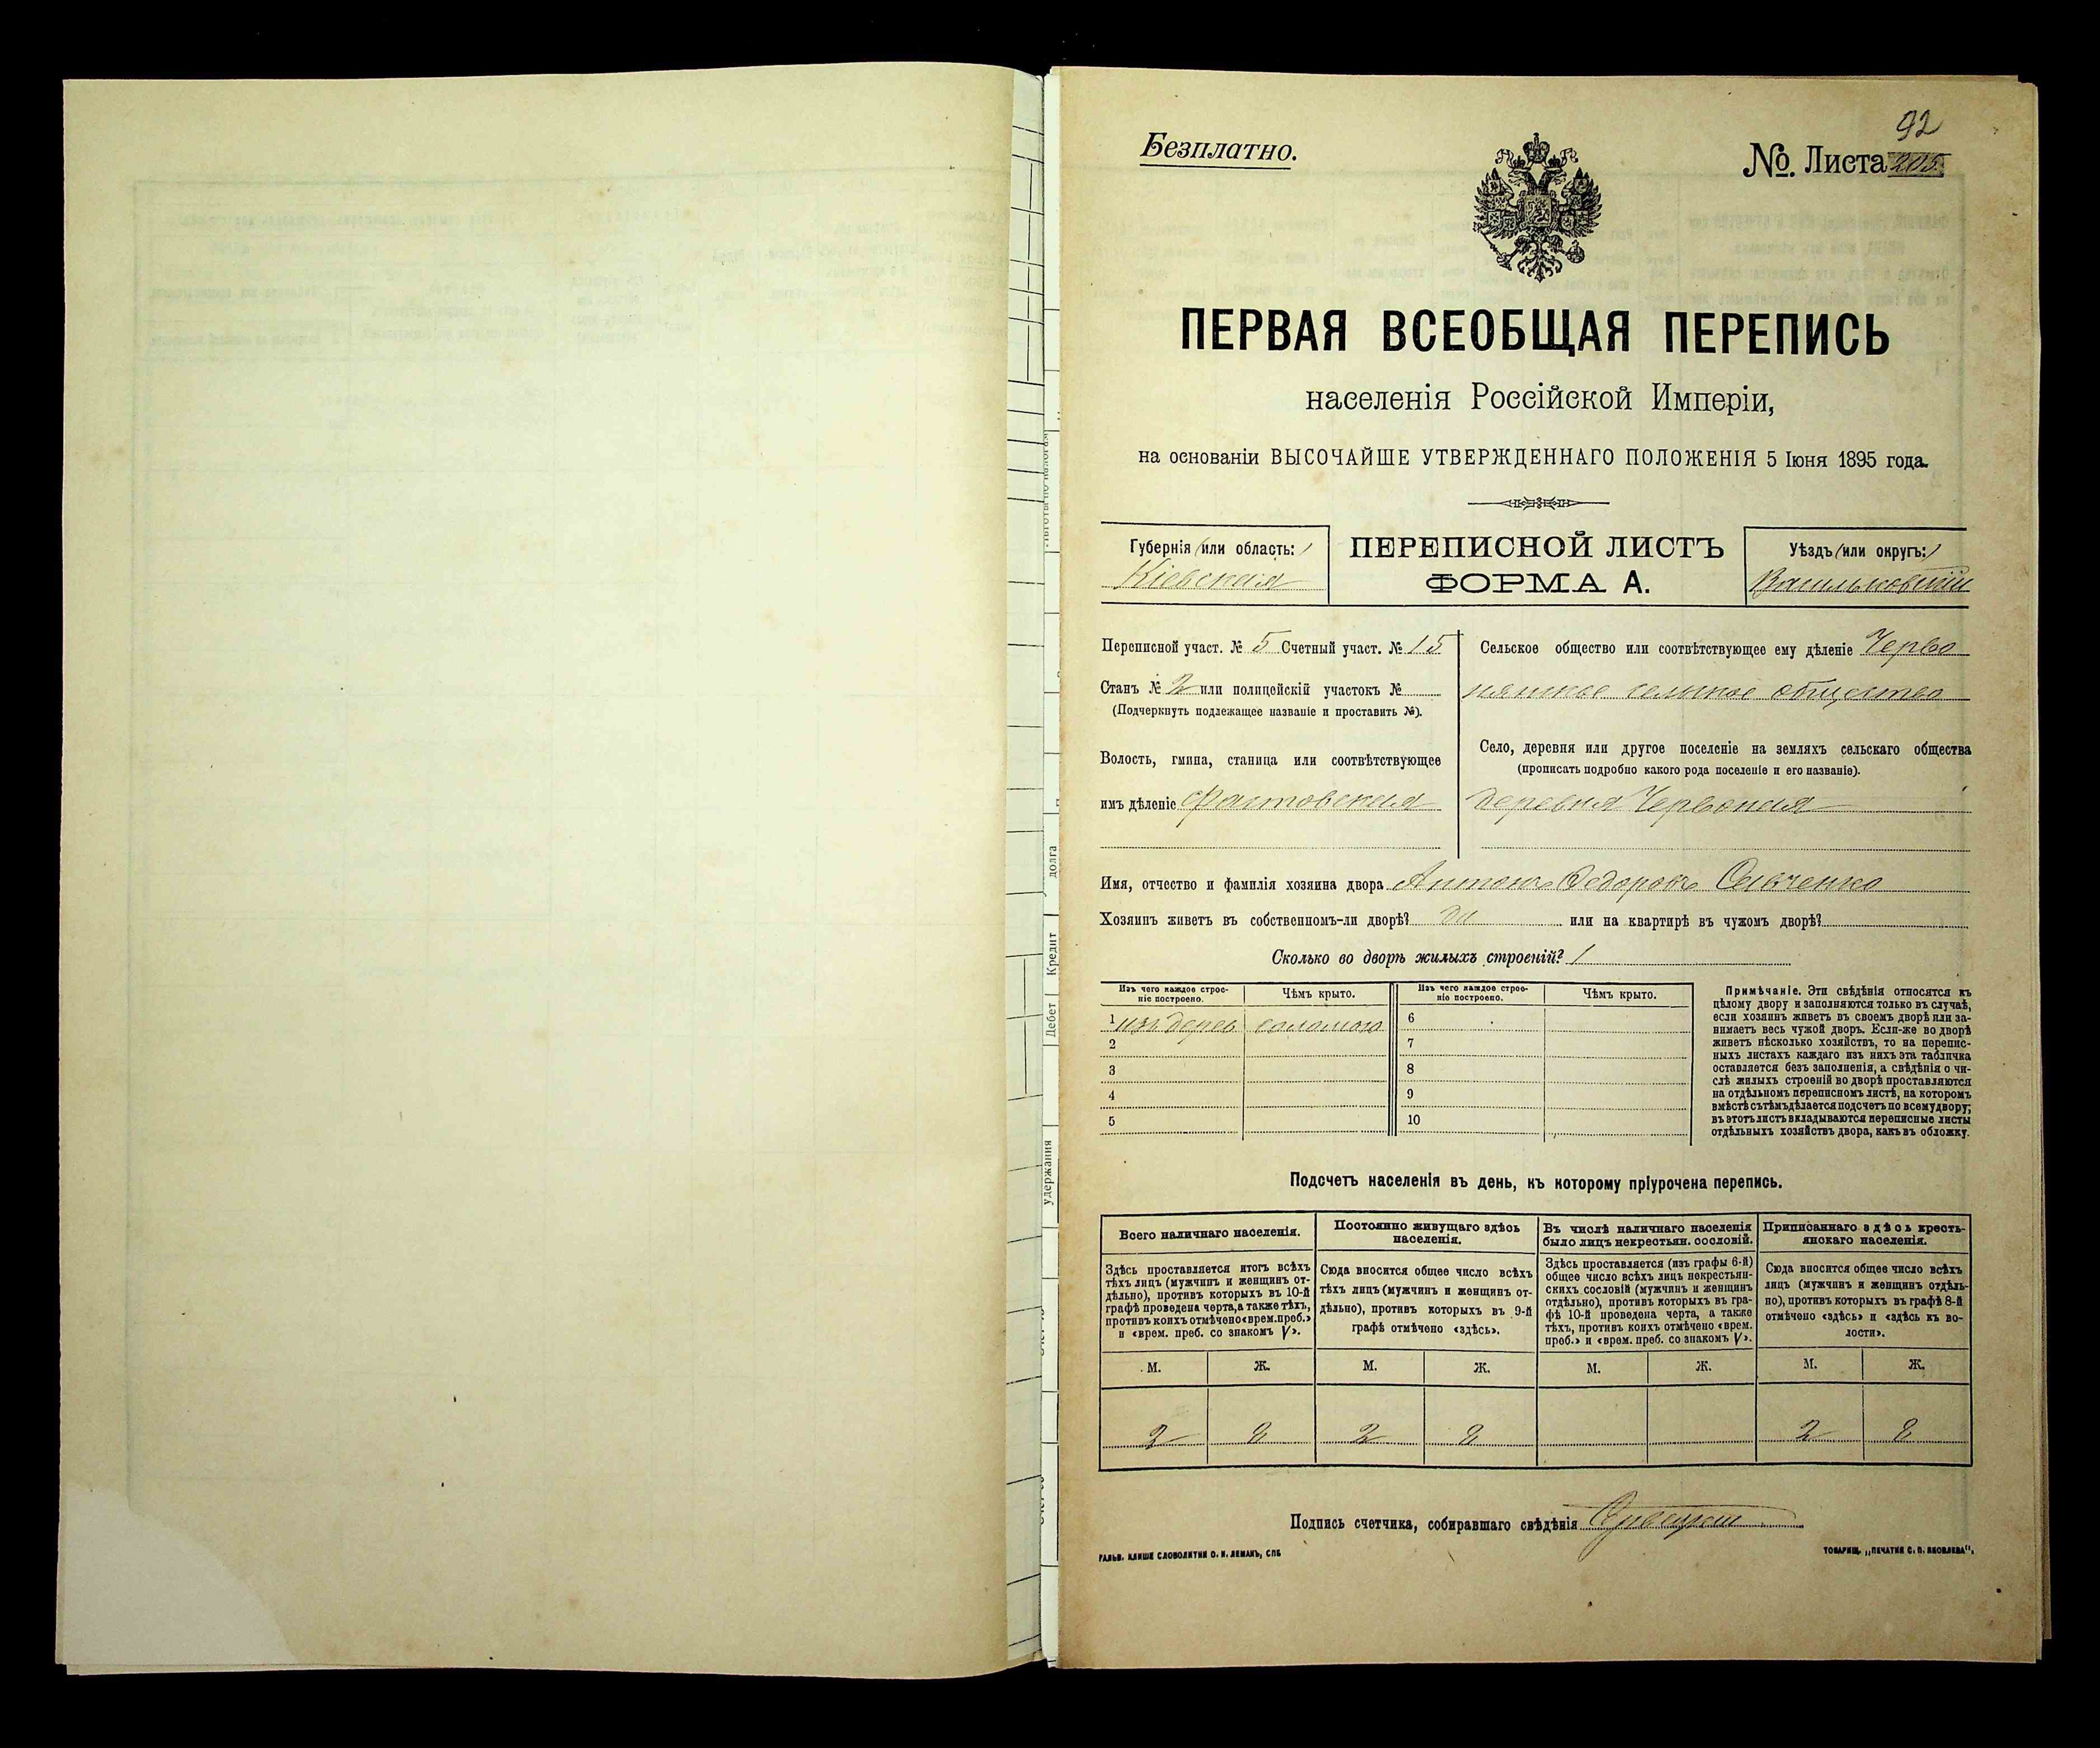 92
Безплатно.
№. Листа 205
ПЕРВАЯ ВСЕОБЩАЯ ПЕРЕПИСЬ
населенія Россійской Имперіи,
на основаніи ВЫСОЧАЙШЕ УТВЕРЖДЕННАГО ПОЛОЖЕНІЯ 5 Іюня 1895 года.
Губернія (или область:)
Кіевская
ПЕРЕПИСНОЙ ЛИСТЪ
ФОРМА А.
Уѣздъ (или округъ:)
Васильковскій
Переписной участ. № 5 Счетный участ. № 15
Станъ № 2 или полицейскій участокъ №
(Подчеркнуть подлежащее названіе и проставить №).
Волость, гмина, станица или соотвѣтствующее
имъ дѣленіе Фастовская
Сельское общество или соотвѣтствующее ему дѣленіе Черво
нянское сельское общество
Село, деревня или другое поселеніе на земляхъ сельскаго общества
(прописать подробно какого рода поселеніе и его названіе).
деревня Червоная
Имя, отчество и фамилія хозяина двора Антонъ Федоровъ
Хозяинъ живетъ въ собственномъ-ли дворѣ? да или на квартирѣ въ чужомъ дворѣ?
Сколько во дворѣ жилыхъ строеній? 1
Изъ чего каждое строе-
ніе построено.
Чѣмъ крыто.
Изъ чего каждое строе-
ніе построено.
Чѣмъ крыто.
1 изъ дерев соломою
2
3
4
5
6
7
8
9
10
Примѣчаніе. Эти свѣдѣнія относятся къ
цѣлому двору и заполняются только въ случаѣ,
если хозяинъ живетъ въ своемъ дворѣ или за-
нимаетъ весь чужой дворъ. Если-же во дворѣ
живетъ нѣсколько хозяйствъ, то на перепис-
ныхъ листахъ каждаго изъ нихъ эта табличка
оставляется безъ заполненія, а свѣдѣнія о чи-
слѣ жилыхъ строеній во дворѣ проставляются
на отдѣльномъ переписномъ листѣ, на которомъ
вмѣстѣ съ тѣмъ дѣлается подсчетъ по всему двору;
въ этотъ листъ вкладываются переписные листы
отдѣльныхъ хозяйствъ двора, какъ въ обложку.
Подсчетъ населенія въ день, къ которому пріурочена перепись.
Всего наличнаго населенія.
Здѣсь проставляется итогъ всѣхъ
тѣхъ лицъ (мужчинъ и женщинъ от-
дѣльно), противъ которыхъ въ 10-й
графѣ проведена черта, а также тѣхъ,
противъ коихъ отмѣчено «врем. преб.»
и «врем. преб. со знакомъ V».
Постоянно живущаго здѣсь
населенія.
Сюда вносится общее число всѣхъ
тѣхъ лицъ (мужчинъ и женщинъ от-
дѣльно), противъ которыхъ въ 9-й
графѣ отмѣчено «здѣсь».
Въ числѣ наличнаго населенія
было лицъ некрестьян. сословій.
Здѣсь проставляется (изъ графы 6-й)
общее число всѣхъ лицъ некрестьян-
скихъ сословій (мужчинъ и женщинъ
отдѣльно), противъ которыхъ въ гра-
фѣ 10-й проведена черта, а также
тѣхъ, противъ коихъ отмѣчено «врем.
преб.» и «врем. преб. со знакомъ V».
Приписаннаго здѣсь кресть-
янскаго населенія.
Сюда вносится общее число всѣхъ
лицъ (мужчинъ и женщинъ отдѣль-
но), противъ которыхъ въ графѣ 8-й
отмѣчено «здѣсь» и «здѣсь къ во-
лости».
М. Ж. М. Ж. М. Ж. М. Ж.
2 2 2 2 2 2
Подпись счетчика, собиравшаго свѣдѣнія
ГАЛЬВ. КЛИШЕ СЛОВОЛИТНИ О. И. ЛЕМАНЪ, СПБ
ТОВАРИЩ. „ПЕЧАТНЯ С. П. ЯКОВЛЕВА“.
долга
Кредит
Дебет
удержания